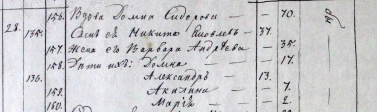 156. Вдова Домна Сидорова — — 70.
28. 135. Сынъ ея Никита Яковлевъ — 37.
157. Жена его Варвара Андреева — 35.
158. Дѣти ихъ: Домна — 17.
136. Александръ 13.
159. Акилина — 7.
160. Марія — 2.